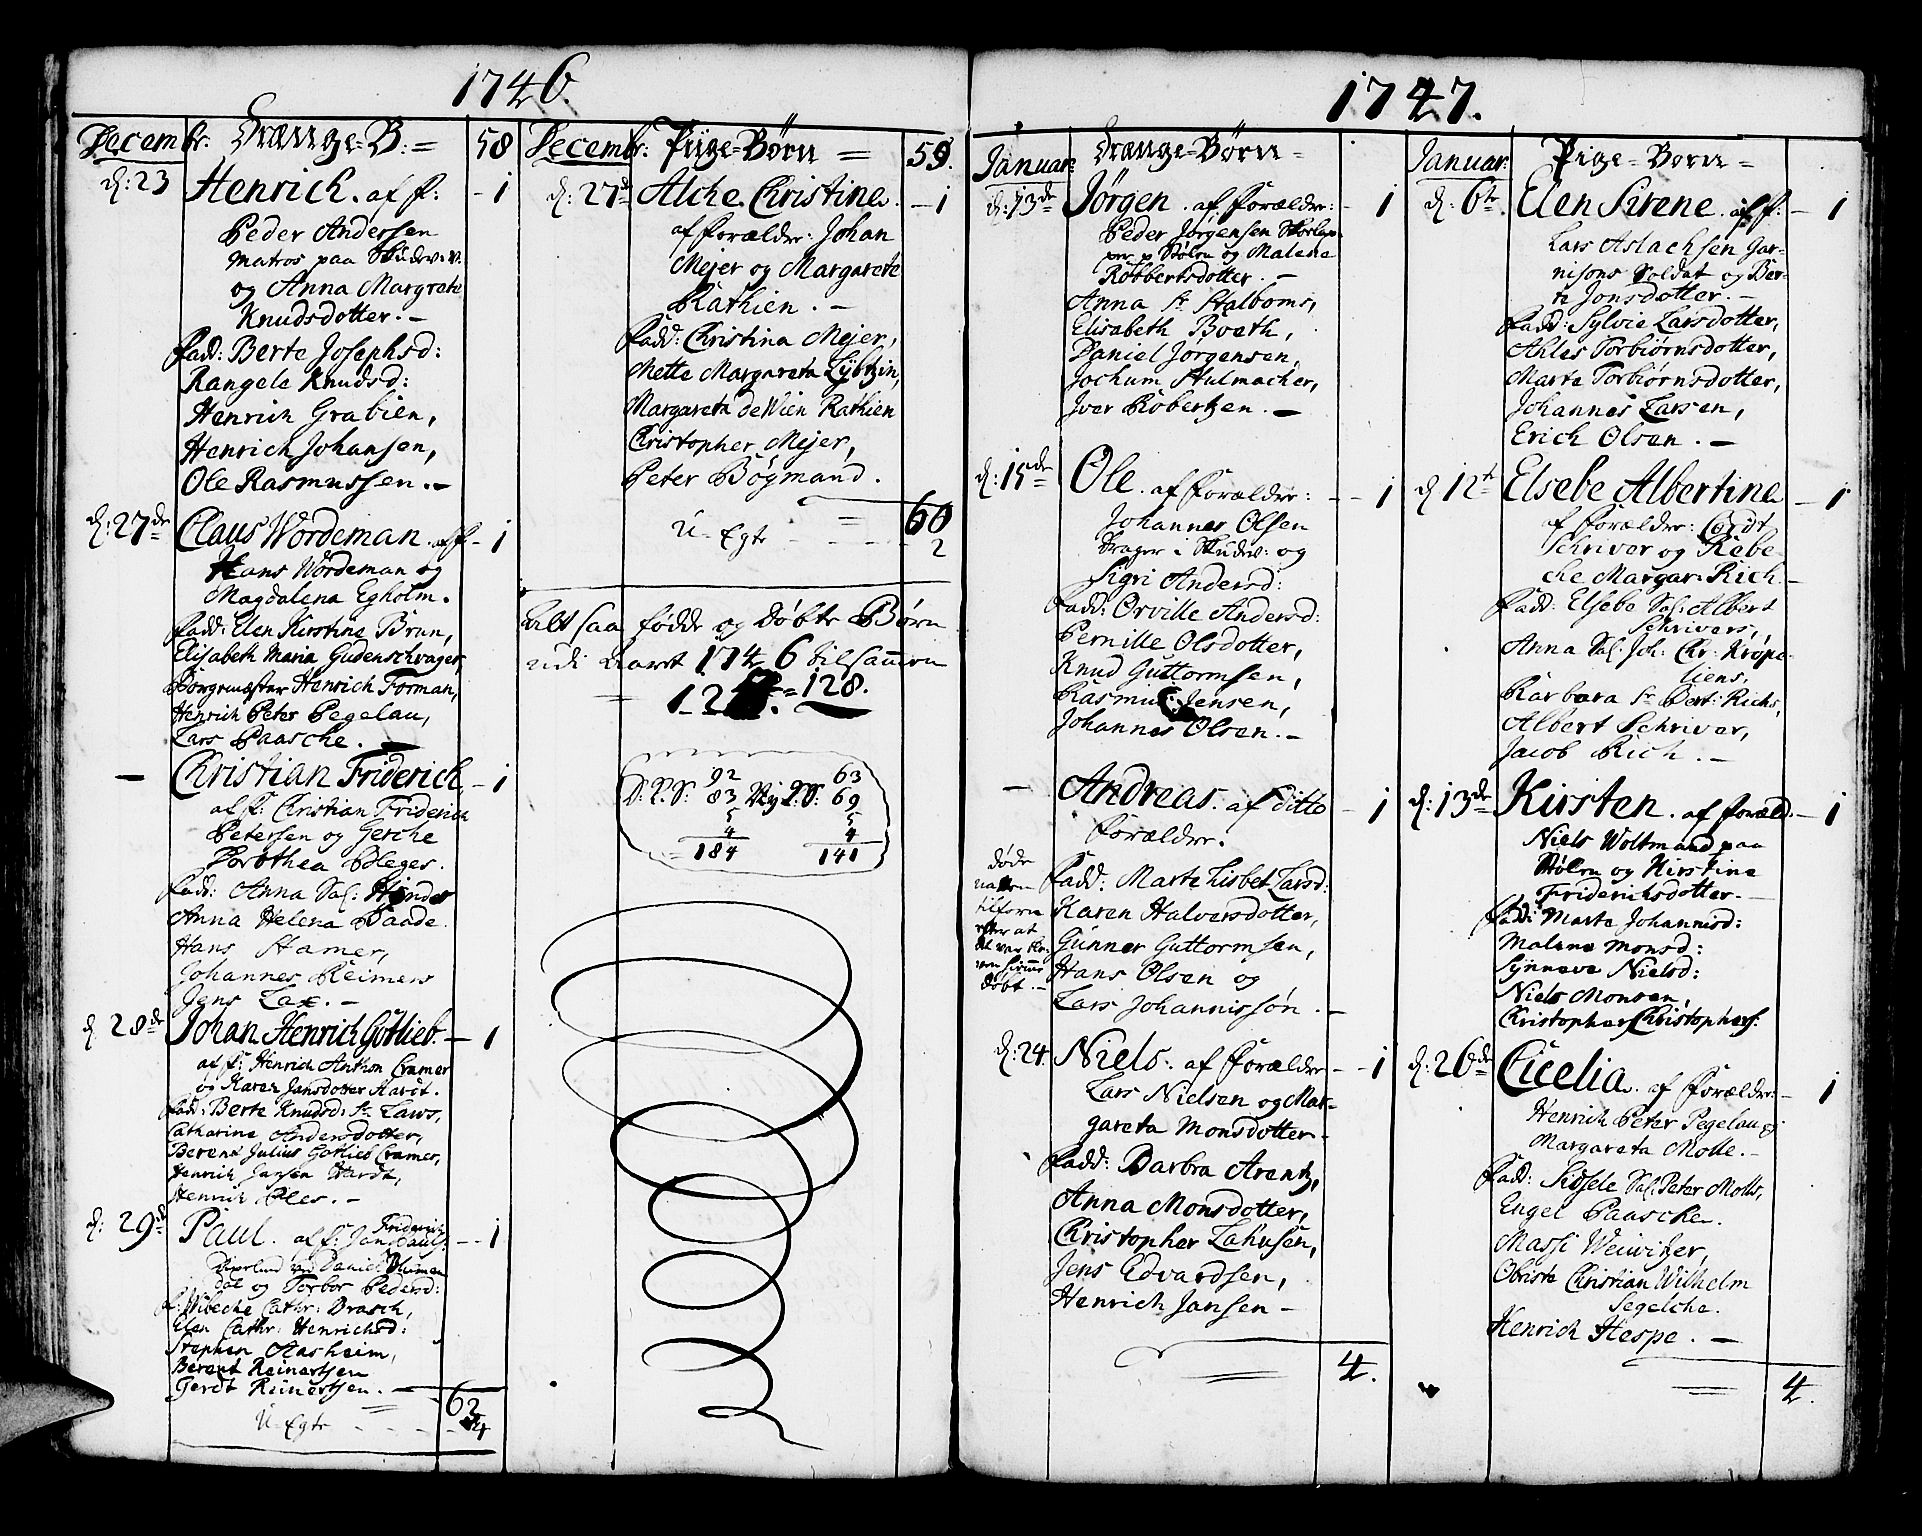 1746.
Decembr: Drænge=B:= 58
d: 23 Henrich. af f: - 1
Peder Andersen
Matros paa Skudev: V:
og Anna Margrete
Knudsdotter. -
Fadd: Berte Josephsd:
Rangele Knudsd:
Henrich Grabien,
Henrich Johansen,
Ole Rasmussen. -
d: 27de Claus Wördeman. af f - 1
Hans Wördeman og
Magdalena Egholm.
Fadd: Elen Kirstine Brun,
Elisabeth Maria Gudenschvager,
Borgemester Henrich Forman,
Henrich Peter Pegelau,
Lars Paasche. -
- Christian Friderich - 1
af f: Christian Friderich
Petersen og Gerche
Dorothea Bleges.
Fadd: Anna Sal:
Anna Helena Baade.
Hans Hamer,
Johannes Reimers
Jens Lax. -
d 28de Johan Henrich Gotlieb - 1
af f: Henrich Anthon Cramer
og Karen Jansdotter Hardt.
Fadd: Berte Knudsd: Sr Laws,
Catharine Andersdotter,
Berent Julius Gotlieb Cramer,
Henrich Jansen Hardt,
Henrich Ples. -
d: 29de Paul. af f: Jan Friderich Pauls: - 1
Daniel
dal og Torbor Pedersd:
f: Wibeche Cathr: Brasch,
Elen Cathr: Henrichsd:
Stephen Aasheim,
Berent Reinertsen
Gerdt Reinertsen. -
62
U-Egte - - - 4
Decembr: Piige=Børn = 59.
d: 27de Alche Christine. - 1
af Forældre: Johan
Mejer og Margarete
Rathien. -
Fadd: Christina Mejer,
Mette Margareta Lÿbtzin,
Margareta de Wien Rathien
Christopher Mejer,
Peter Bögmand.
60
U-Egte - - - 2
Alt saa födde og döbte Børn
udi Aaret 1746 tilsam̅en
= 128.
D: L. S: 92 Ny L. S: 63
83 69
5 5
4 4
184 141
1747.
Januar: Drænge=Børn=
d: 13de Jørgen. af Forældre: - 1
Peder Jørgensen
p Nölen og Malene
Robbertsdotter. -
Anna Sr Stalboms,
Elisabeth Boeth,
Daniel Jørgensen,
Jochum Hulmacher,
Iver Robertzen. -
d: 15de Ole. af Forældre: - - 1
Johannes Olsen
Drager i Skudev: og
Sigri Andersd:
Fadd: Orville Andersd:
Pernille Olsdotter,
Knud Guttormsen,
Rasmus Jensen,
Johannes Olsen. -
- Andreas. af Ditto - 1
Forældre.
døde
natten
tilforn
efter at
det var
hiem̅e
døbt. -
Fadd: Marte Lisbet Larsd:
Karen Halversdotter,
Gunner Guttormsen,
Hans Olsen og
Lars Johannissøn. -
d: 24. Niels. af Forældre - - 1
Lars Nielsen og Mar-
gareta Monsdotter.
Fadd: Barbra Arentz,
Anna Monsdotter,
Christopher Lahusen,
Jens Edvardsen,
Henrich Jansen -
4.
Januar: Pige=Børn=
d: 6te Elen Sirene. af f: - 1
Lars Aslachsen Gar-
nisons Soldat og Ber-
te Jonsdotter. -
Fadd: Sylvie Larsdotter,
Ahles Torbiørnsdotter,
Marte Torbiørnsdotter,
Johannes Larsen,
Erich Olsen. -
d 12te Elsebe Albertine - 1
af Forældre: Cordt
Schriver og Rebe-
che Margar: Rich. -
Fadd: Elsebe Sal: Albert
Schrivers,
Anna Sal: Joh: Chr: Krøpe-
liens,
Barbara Sr Bert: Richs,
Albert Schriver,
Jacob Rich. -
d: 13de Kirsten. af Foræld. - 1
Niels Woltmand paa
Nölen og Kirstine
Friderichsdotter. -
Fadd: Marte Johannisd:
Malene Monsd:
Synneve Nielsd:
Niels Monsen,
Christopher Christophers:
d: 26de Cicelia. af Forældre: - 1
Henrich Peter Pegelau og
Margareta Molle. -
Fadd: Sidsele Sal: Peter Molls,
Engel Paasche.
Massi Weiwitzer,
Obriste Christian Wilhelm
Segelche.
Henrich Hespe. -
4.